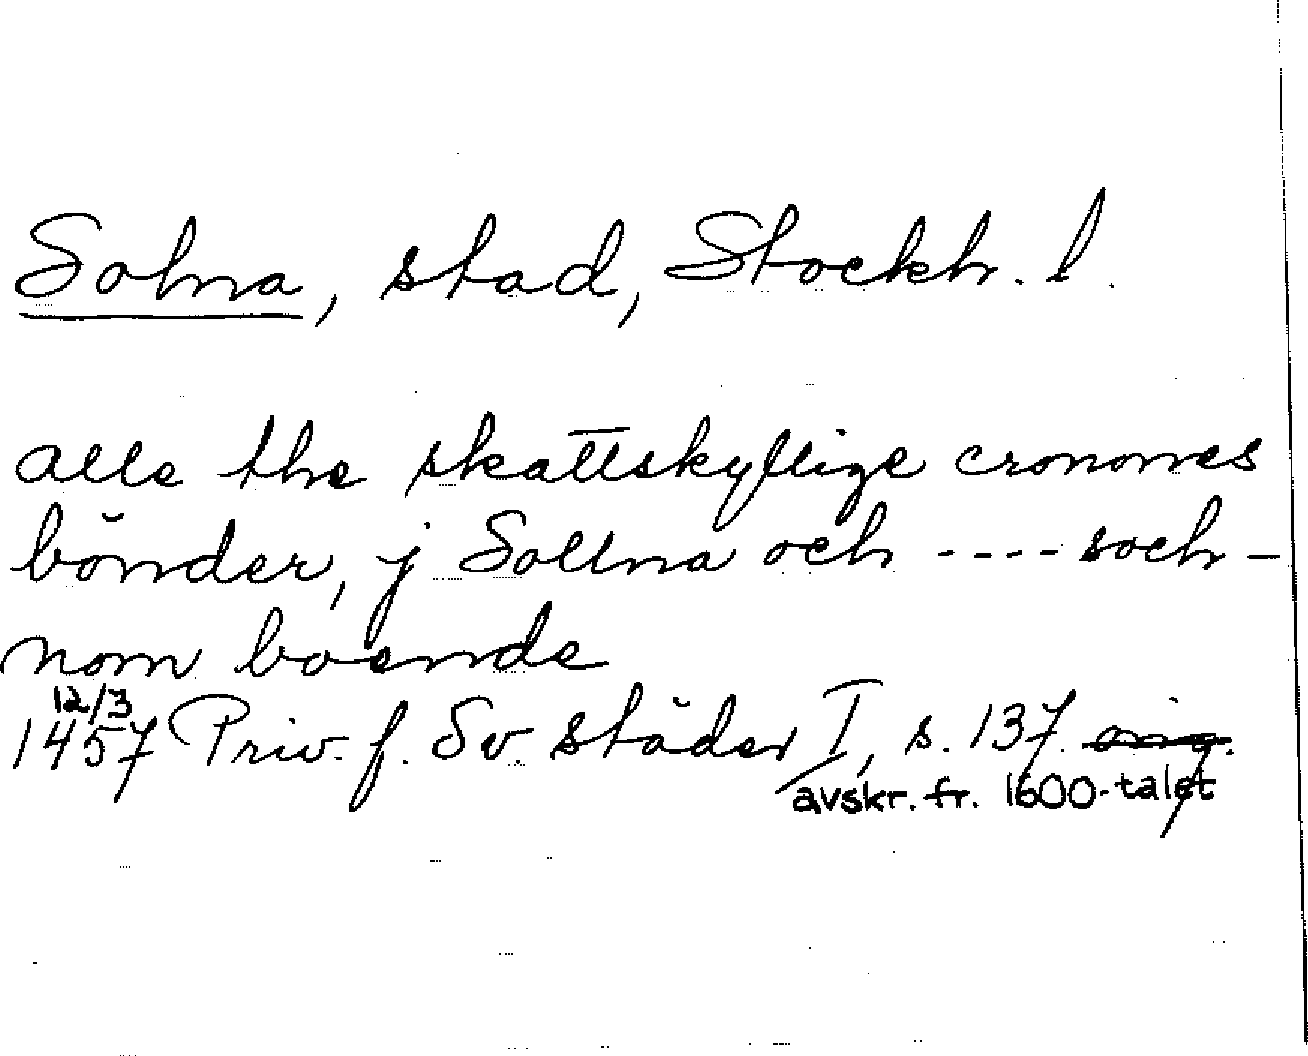 Solna, stad, Stockh. l.
alle the skattskyllige cronones
bönder, j Sollna och ---- soch-
nom boende
12/3
1457 Priv. f. Sv. städer I, s. 137. orig.
avskr. fr. 1600-talet